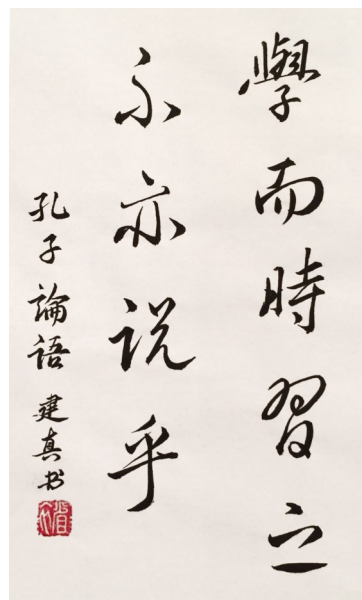 學而時習之
不亦説乎
孔子論語 建真书